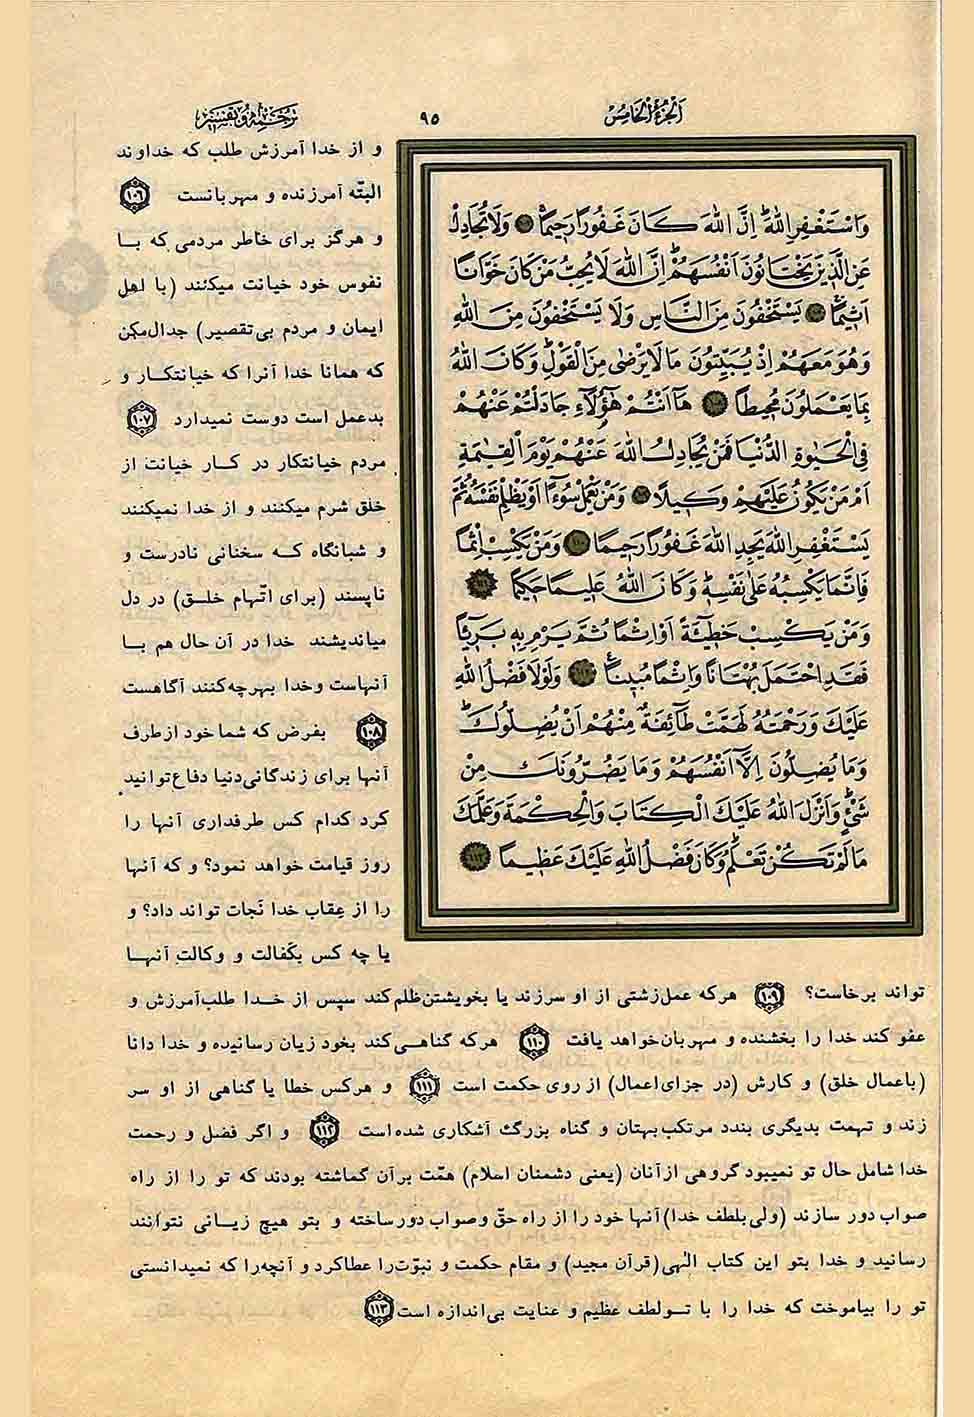 اَلْجُزْءُ الْخَامِسُ
۹۵
ترجمه و تفسیر
وَاسْتَغْفِرِ اللهَ اِنَّ اللهَ كَانَ غَفُورًا رَحِيمًا ﴿۱۰۶﴾ وَلَا تُجَادِلْ
عَنِ الَّذِينَ يَخْتَانُونَ اَنْفُسَهُمْ اِنَّ اللهَ لَا يُحِبُّ مَنْ كَانَ خَوَّانًا
اَثِيمًا ﴿۱۰۷﴾ يَسْتَخْفُونَ مِنَ النَّاسِ وَلَا يَسْتَخْفُونَ مِنَ اللهِ
وَهُوَ مَعَهُمْ اِذْ يُبَيِّتُونَ مَا لَا يَرْضٰى مِنَ الْقَوْلِ وَكَانَ اللهُ
بِمَا يَعْمَلُونَ مُحِيطًا ﴿۱۰۸﴾ هَا اَنْتُمْ هٰؤُلَاءِ جَادَلْتُمْ عَنْهُمْ
فِي الْحَيٰوةِ الدُّنْيَا فَمَنْ يُجَادِلُ اللهَ عَنْهُمْ يَوْمَ الْقِيٰمَةِ
اَمْ مَنْ يَكُونُ عَلَيْهِمْ وَكِيلًا ﴿۱۰۹﴾ وَمَنْ يَعْمَلْ سُوءًا اَوْ يَظْلِمْ نَفْسَهُ ثُمَّ
يَسْتَغْفِرِ اللهَ يَجِدِ اللهَ غَفُورًا رَحِيمًا ﴿۱۱۰﴾ وَمَنْ يَكْسِبْ اِثْمًا
فَاِنَّمَا يَكْسِبُهُ عَلٰى نَفْسِهِ وَكَانَ اللهُ عَلِيمًا حَكِيمًا ﴿۱۱۱﴾
وَمَنْ يَكْسِبْ خَطِيئَةً اَوْ اِثْمًا ثُمَّ يَرْمِ بِهِ بَرِيئًا
فَقَدِ احْتَمَلَ بُهْتَانًا وَاِثْمًا مُبِينًا ﴿۱۱۲﴾ وَلَوْلَا فَضْلُ اللهِ
عَلَيْكَ وَرَحْمَتُهُ لَهَمَّتْ طَائِفَةٌ مِنْهُمْ اَنْ يُضِلُّوكَ
وَمَا يُضِلُّونَ اِلَّا اَنْفُسَهُمْ وَمَا يَضُرُّونَكَ مِنْ
شَيْءٍ وَاَنْزَلَ اللهُ عَلَيْكَ الْكِتَابَ وَالْحِكْمَةَ وَعَلَّمَكَ
مَا لَمْ تَكُنْ تَعْلَمُ وَكَانَ فَضْلُ اللهِ عَلَيْكَ عَظِيمًا ﴿۱۱۳﴾
و از خدا آمرزش طلب که خداوند
البتّه آمرزنده و مهربانست ﴿۱۰۶﴾
و هرگز برای خاطر مردمی که با
نفوس خود خیانت میکنند (با اهل
ایمان و مردم بی‌تقصیر) جدال‌مکن
که همانا خدا آنرا که خیانتکار و
بدعمل است دوست نمیدارد ﴿۱۰۷﴾
مردم خیانتکار در کار خیانت از
خلق شرم میکنند و از خدا نمیکنند
و شبانگاه که سخنانی نادرست و
ناپسند (برای اتّهام خلق) در دل
میاندیشند خدا در آن حال هم با
آنهاست و خدا بهرچه‌کنند آگاهست
﴿۱۰۸﴾ بفرض که شما خود ازطرف
آنها برای زندگانی‌دنیا دفاع توانید
کرد کدام کس طرفداری آنها را
روز قیامت خواهد نمود؟ و که آنها
را از عِقاب خدا نَجات تواند داد؟ و
یا چه کس بکَفالت و وکالتِ آنها
تواند برخاست؟ ﴿۱۰۹﴾ هرکه عمل‌زشتی از او سرزند یا بخویشتن‌ظلم‌کند سپس از خدا طلب‌آمرزش و
عفو کند خدا را بخشنده و مهربان‌خواهد یافت ﴿۱۱۰﴾ هرکه گناهی‌کند بخود زیان رسانیده و خدا دانا
(باعمال خلق) و کارش (در جزای‌اعمال) از روی حکمت است ﴿۱۱۱﴾ و هرکس خطا یا گناهی از او سر
زند و تهمت بدیگری بندد مرتکب‌بهتان و گناه بزرگ آشکاری شده‌است ﴿۱۱۲﴾ و اگر فضل و رحمت
خدا شامل حال تو نمیبود گروهی ازآنان (یعنی دشمنان اسلام) همّت برآن گماشته بودند که تو را از راه
صواب دور سازند (ولی بلطف خدا) آنها خود را از راه حقّ و صواب دورساخته و بتو هیچ زیانی نتوانند
رسانید و خدا بتو این کتاب الٰهی (قرآن مجید) و مقام حکمت و نبوّت‌را عطاکرد و آنچه‌را که نمیدانستی
تو را بیاموخت که خدا را با تو لطف عظیم و عنایت بی‌اندازه است ﴿۱۱۳﴾